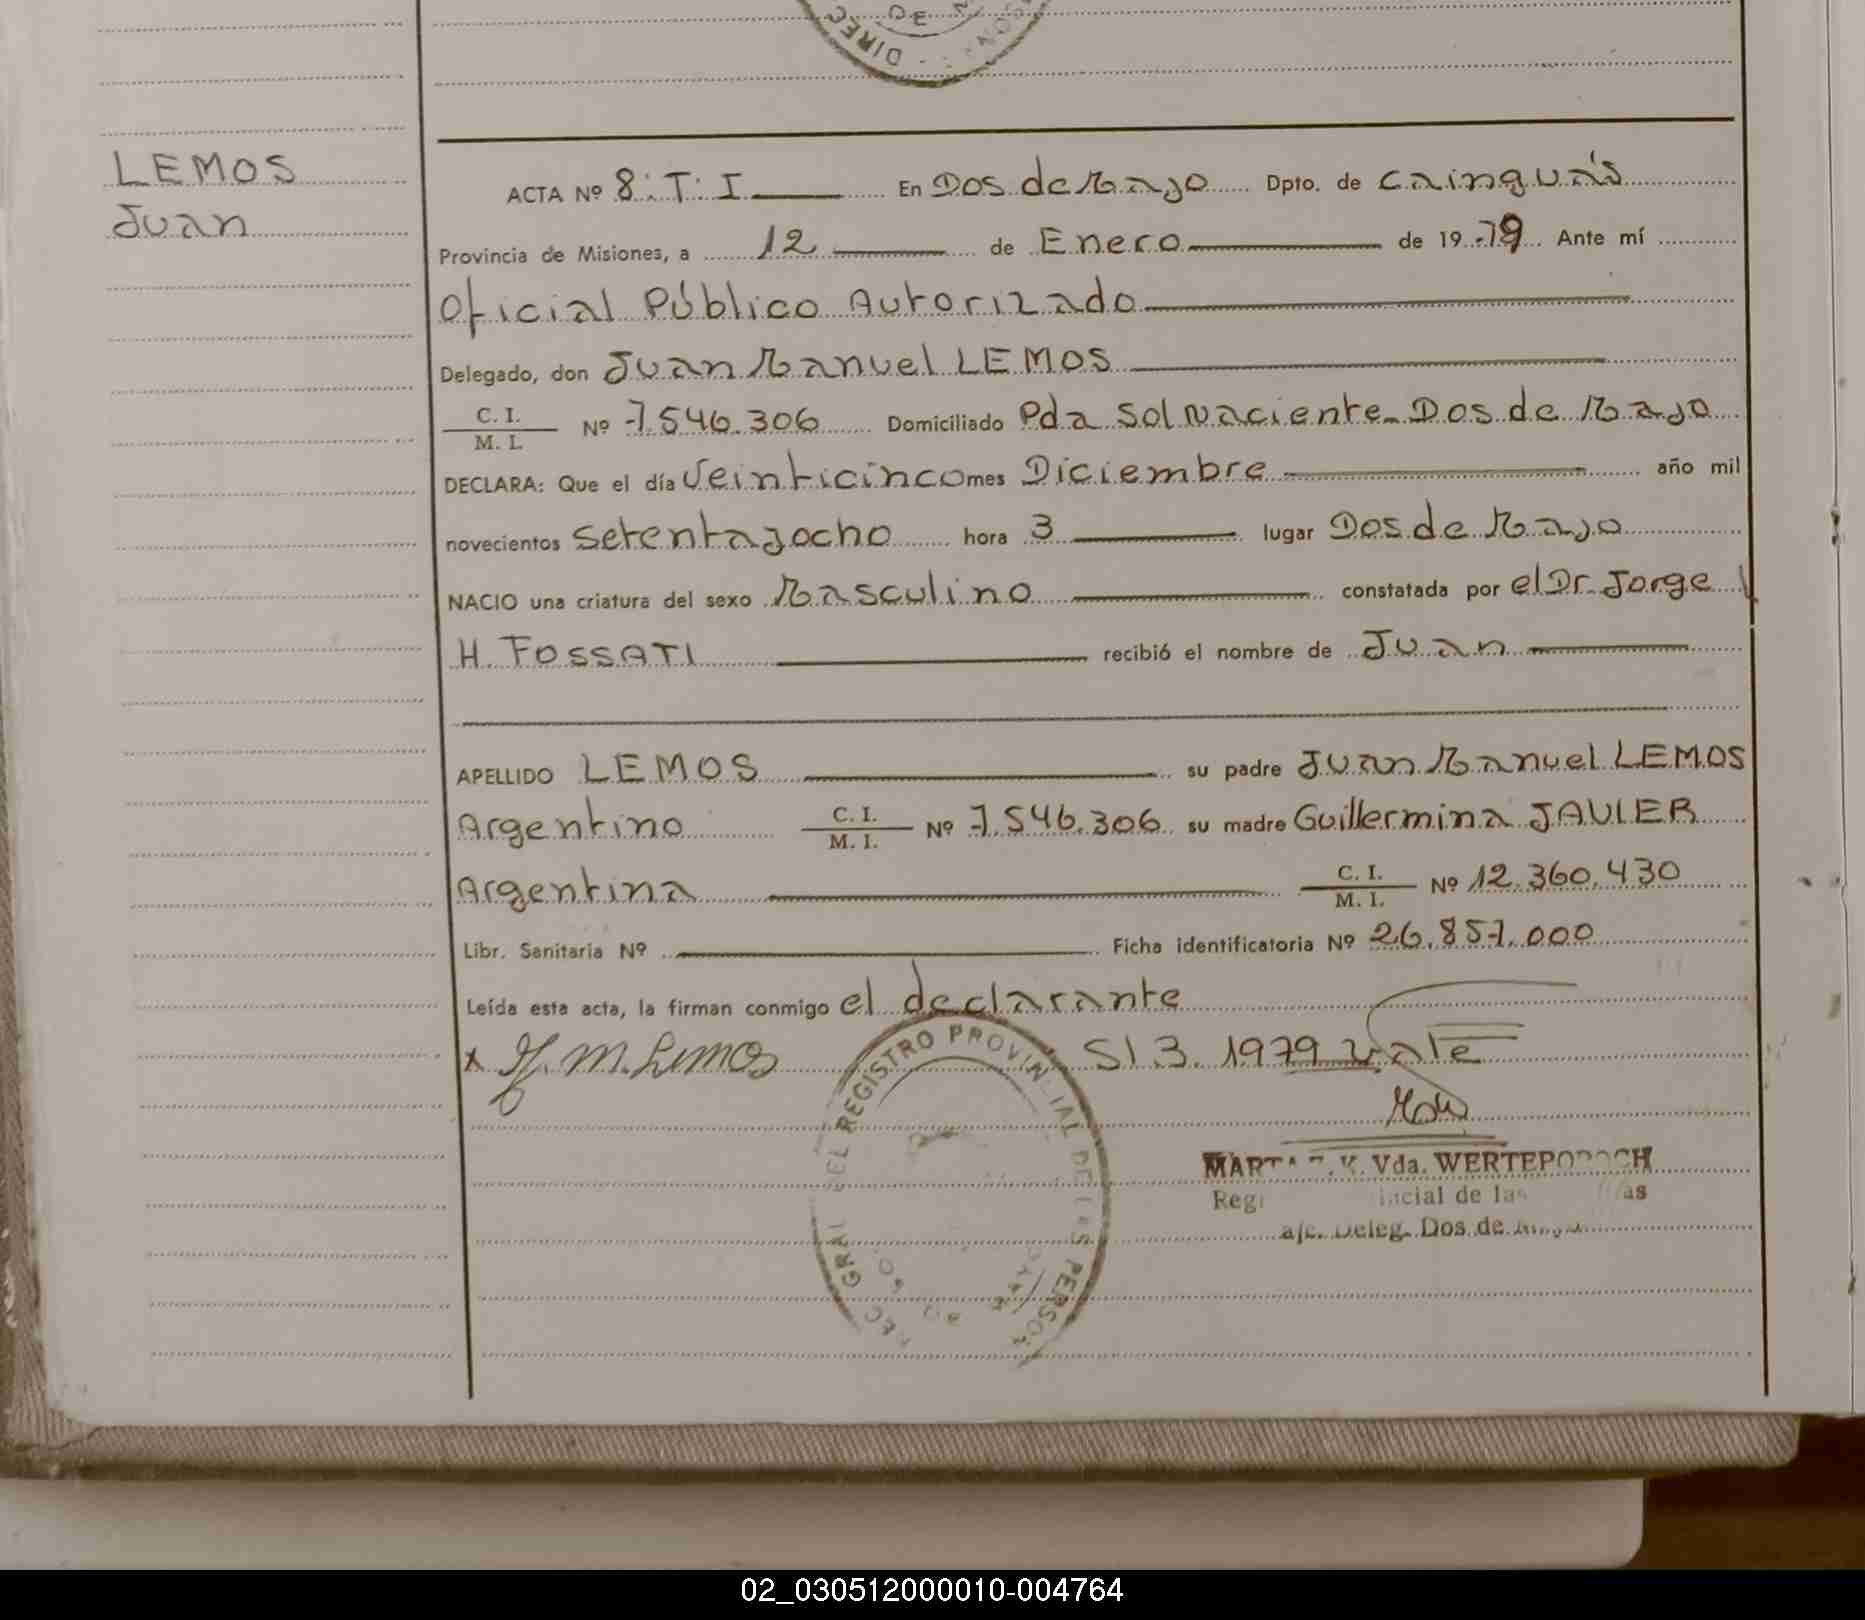 DIREC
DE
LEMOS
Juan
ACTA Nº 8: T: I En Dos de Mayo Dpto. de Cainguás
Provincia de Misiones, a 12 de Enero de 1979 Ante mí
Oficial Público Autorizado
Delegado, don Juan Manuel LEMOS
C. I.
M. I. Nº 7.546.306 Domiciliado Pda Sol Naciente - Dos de Mayo
DECLARA: Que el día Veinticinco mes Diciembre año mil
novecientos setentayocho hora 3 lugar Dos de Mayo
NACIO una criatura del sexo Masculino constatada por el Dr. Jorge
H. FOSSATI recibió el nombre de Juan
APELLIDO LEMOS su padre Juan Manuel LEMOS
Argentino C. I. M. I. Nº 7.546.306 su madre Guillermina JAVIER
Argentina C. I. M. I. Nº 12.360.430
Libr. Sanitaria Nº Ficha identificatoria Nº 26.857.000
Leída esta acta, la firman conmigo el declarante
x J. M. Lemos S/.3. 1979 vale
GRAL DEL REGISTRO PROVINCIAL DE LAS PERSON
MARTA Vda. WERTEPOROCH
incial de las as
a/c. Deleg. Dos de Mayo
02_030512000010-004764